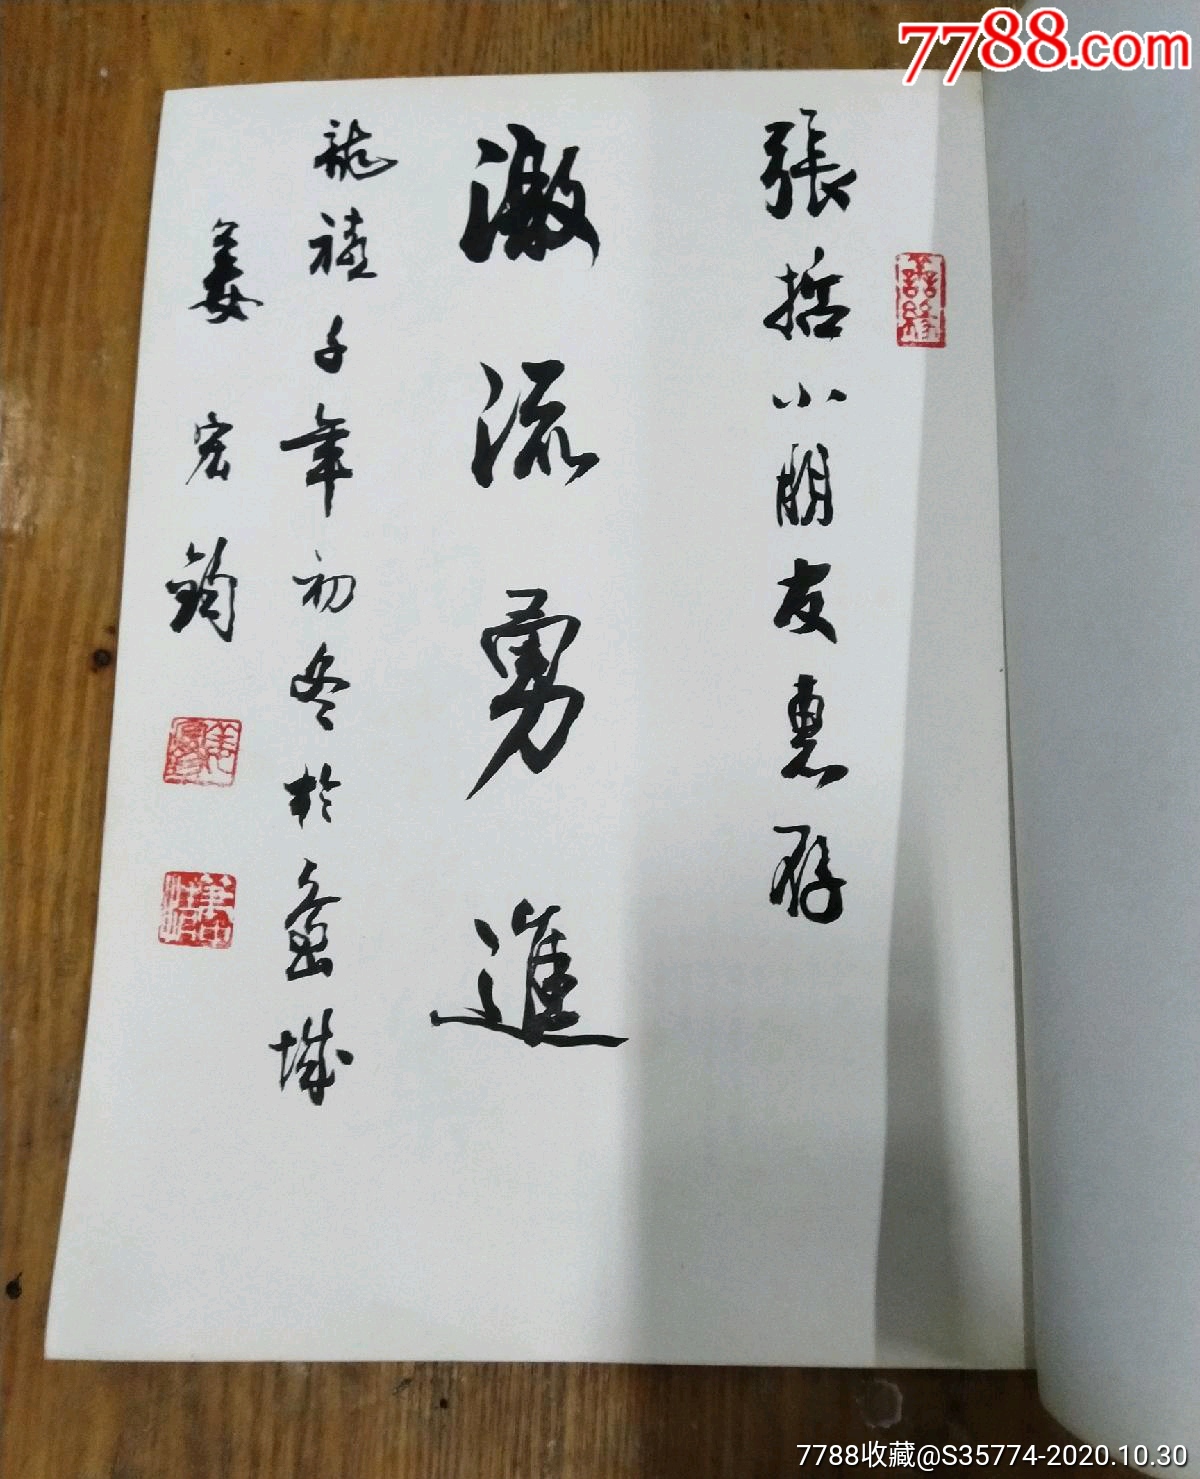 7788.com
張哲小朋友惠存
激流勇進
龍禧千年初冬於盆城
姜宏鈞
7788收藏@S35774-2020.10.30